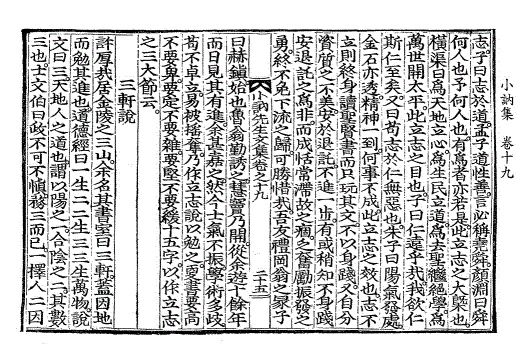 小訥集 卷十九
志子曰志於道孟子道性善言必稱堯舜顔淵曰舜
何人也予何人也有爲者亦若是此立志之大槩也
橫渠曰爲天地立心爲生民立道爲去聖繼絶學爲
萬世開太平此立志之目也子曰仁遠乎哉我欲仁
斯仁至矣又曰苟志於仁無惡也朱子曰陽氣發處
金石亦透精神一到何事不成此立志之效也志不
立則終身讀聖賢書而只玩其文不以身踐又自分
資質之不美安於退託不進一步有或稍知不身踐
安退託之爲非而成恬常滯故之痼乏奮勵振發之
勇終不免下流之歸可勝惜哉吾友禮岡翁之家子
小訥先生文集卷之十九
二十五
曰赫鎭始也魯翁勤誘之慧竇乃開從余遊十餘年
而日見其有進余甚嘉之然今士氣不振學術多歧
苟不卓立易被搖奪乃作立志說以勉之更書要高
不要卑要定不要雜要堅不要緩十五字以作立志
之三大節云
三軒說
許厚哉居金陵之三山余名其書室曰三軒蓋因地
而勉其進也道德經曰一生二二生三三生萬物說
文曰三天地人之道也謂以陽之一合陰之二其數
三也士文伯曰政不可不愼務三而已一擇人二因